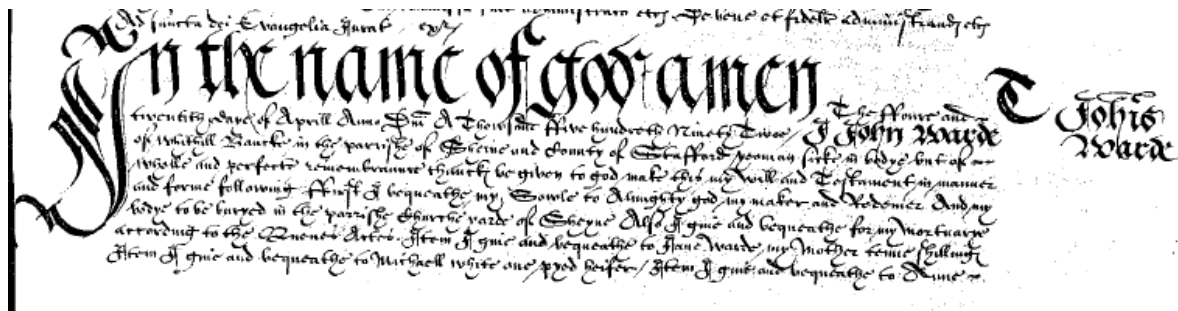 sancta dei Evangelia Jurat exr
In the name of god amen The ffoure and
twentithe daye of Aprill Anno Dni A Thowsand ffive hundreth Ninety Twoo / I John Warde
of Whithill Bancke in the parrishe of Sheyne and County of Stafford yeoman sicke in bodye but of
wholle and perfecte remembraunce thanckes be given to god make this my will and Testament in manner
and forme following ffirst I bequeathe my Sowle to Almighty god my maker and Redemer And my
bodye to be buryed in the parrishe Churche yarde of Sheyne Also I give and bequeathe for my Mortuarye
according to the Quenes Actes Item I give and bequeathe to Jane Warde my Mother tenne shillings
Item I give and bequeathe to Michaell White one pyed heifer / Item I give and bequeathe to Anne
T Johis
Warde